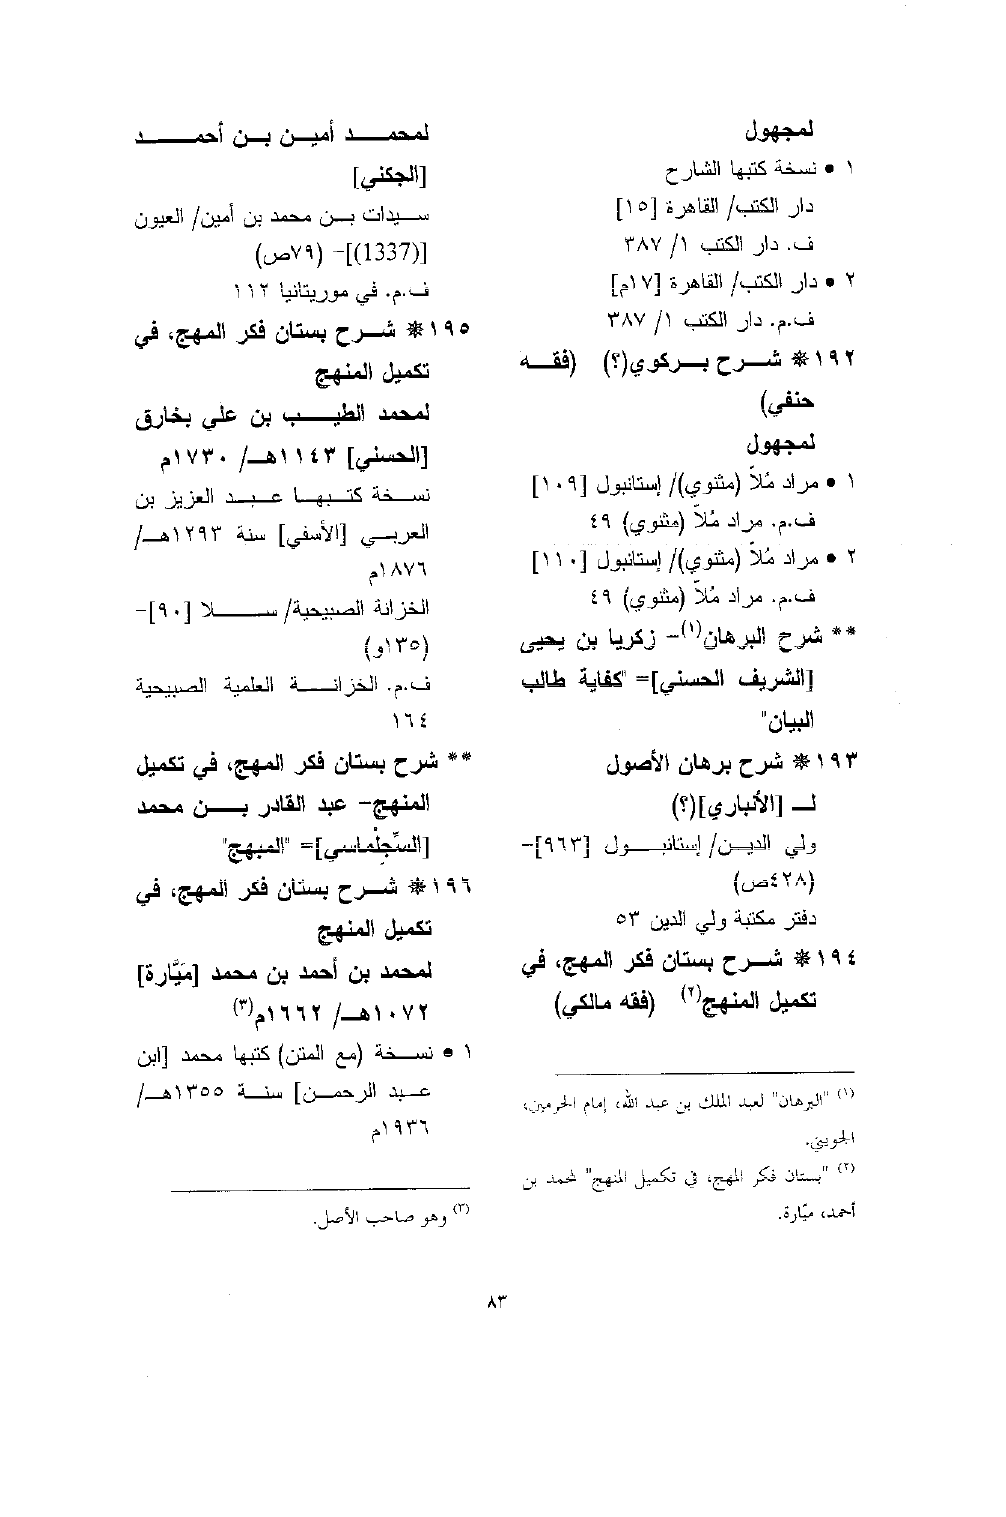 لمجهول
١ • نسخة كتبها الشارح
دار الكتب/ القاهرة [١٥]
ف. دار الكتب ١/ ٣٨٧
٢ • دار الكتب/ القاهرة [١٧م]
ف.م. دار الكتب ١/ ٣٨٧
١٩٢ * شرح بركوي(؟) (فقه
حنفي)
لمجهول
١ • مراد مُلاّ (مثنوي)/ إستانبول [١٠٩]
ف.م. مراد مُلاّ (مثنوي) ٤٩
٢ • مراد مُلاّ (مثنوي)/ إستانبول [١١٠]
ف.م. مراد مُلاّ (مثنوي) ٤٩
** شرح البرهان(١)- زكريا بن يحيى
[الشريف الحسني]= "كفاية طالب
البيان"
١٩٣ * شرح برهان الأصول
لـ [الأنباري](؟)
ولي الدين/ إستانبول [٩٦٣]-
(٤٢٨ص)
دفتر مكتبة ولي الدين ٥٣
١٩٤ * شرح بستان فكر المهج، في
تكميل المنهج(٢) (فقه مالكي)
(١) "البرهان" لعبد الملك بن عبد الله، إمام الحرمين،
الجويني.
(٢) "بستان فكر المهج، في تكميل المنهج" لمحمد بن
أحمد، ميّارة.
لمحمد أمين بن أحمد
[الجكني]
سيدات بن محمد بن أمين/ العيون
[(1337)]- (٧٩ص)
ف.م. في موريتانيا ١١٢
١٩٥ * شرح بستان فكر المهج، في
تكميل المنهج
لمحمد الطيب بن علي بخارق
[الحسني] ١١٤٣هـ/ ١٧٣٠م
نسخة كتبها عبد العزيز بن
العربي [الأسفي] سنة ١٢٩٣هـ/
١٨٧٦م
الخزانة الصبيحية/ سلا [٩٠]-
(١٣٥و)
ف.م. الخزانة العلمية الصبيحية
١٦٤
** شرح بستان فكر المهج، في تكميل
المنهج- عبد القادر بن محمد
[السِّجِلْماسي]= "المبهج"
١٩٦ * شرح بستان فكر المهج، في
تكميل المنهج
لمحمد بن أحمد بن محمد [مَيَّارة]
١٠٧٢هـ/ ١٦٦٢م(٣)
١ • نسخة (مع المتن) كتبها محمد [ابن
عبد الرحمن] سنة ١٣٥٥هـ/
١٩٣٦م
(٣) وهو صاحب الأصل.
٨٣